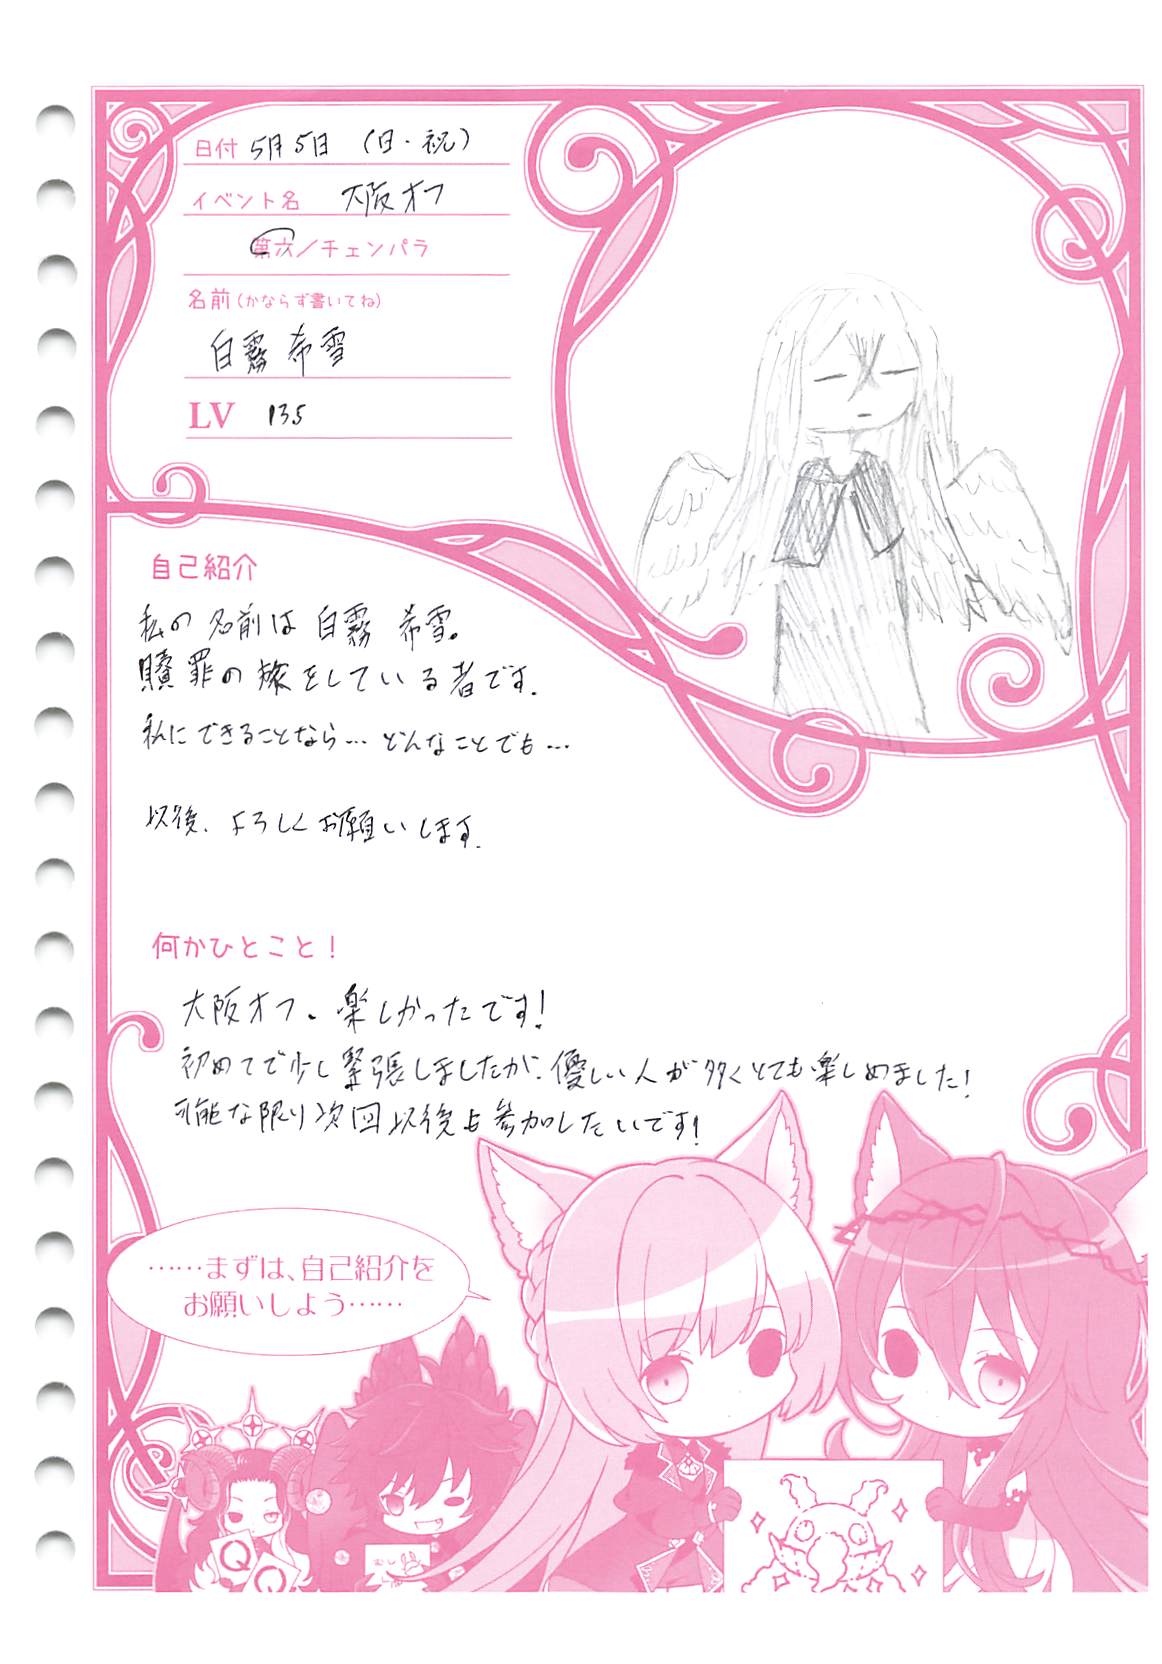 日付 5月5日 (日・祝)
イベント名 大阪オフ
第六／チェンパラ
名前(かならず書いてね)
白霧 希雪
LV 135
自己紹介
私の名前は白霧 希雪。
贖罪の旅をしている者です.
私にできることなら…どんなことでも…
以後、よろしくお願いします.
何かひとこと！
大阪オフ。楽しかったです!
初めてで少し緊張しましたが、優しい人が多くとても楽しめました!
可能な限り次回以後も参加したいです!
……まずは、自己紹介を
お願いしよう……
Q Q
むし